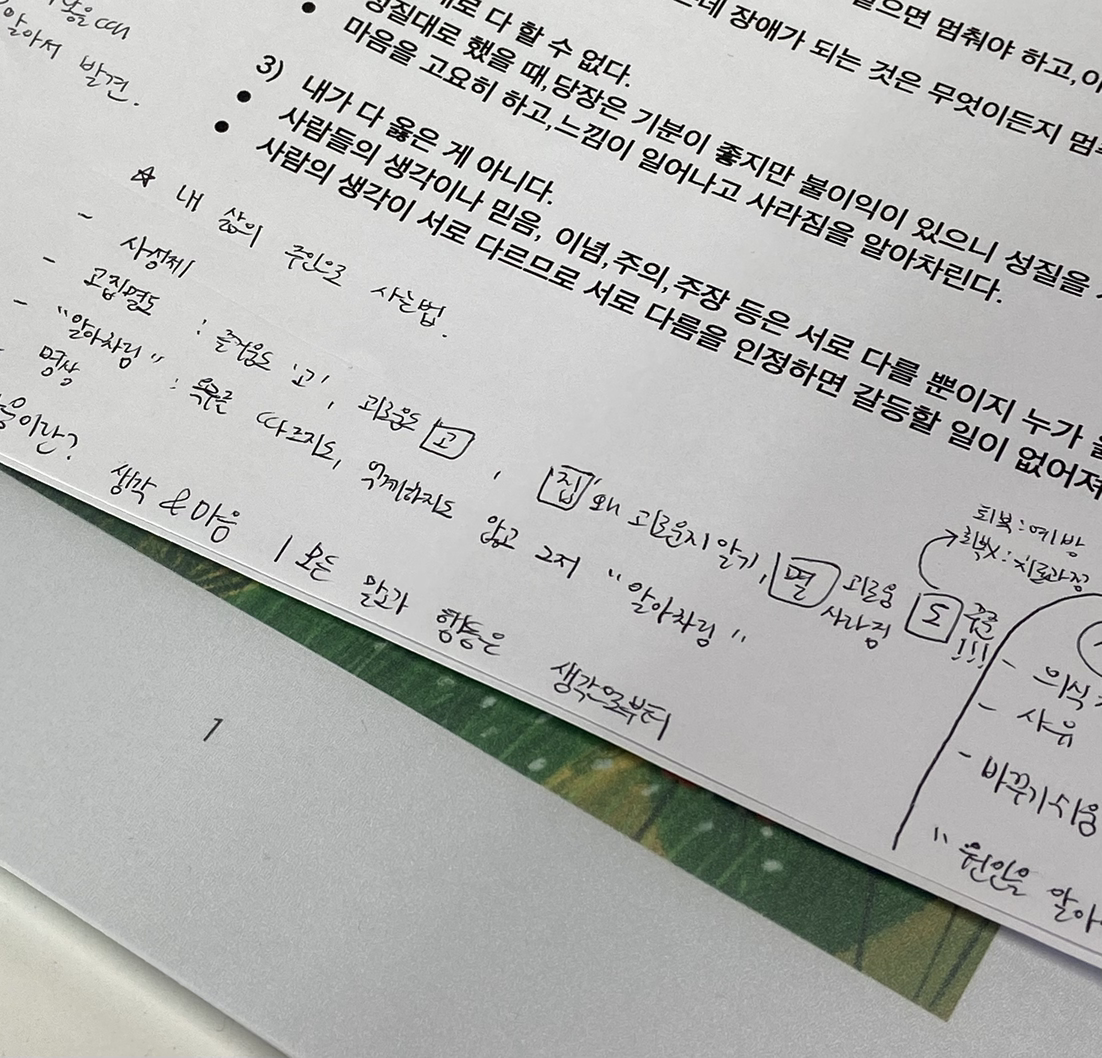 으면 멈춰야 하고, 이
데 장애가 되는 것은 무엇이든지 멈추
로 다 할 수 없다.
성질대로 했을 때, 당장은 기분이 좋지만 불이익이 있으니 성질을
마음을 고요히 하고, 느낌이 일어나고 사라짐을 알아차린다.
3) 내가 다 옳은 게 아니다.
• 사람들의 생각이나 믿음, 이념, 주의, 주장 등은 서로 다를 뿐이지 누가 옳
• 사람의 생각이 서로 다르므로 서로 다름을 인정하면 갈등할 일이 없어져
알아서 발견.
☆ 내 삶의 주인으로 사는법.
- 사성제
- 고집멸도 : 즐거움도 '고', 괴로움도 고, 집 왜 괴로운지 알기, 멸 괴로움 사라짐 도 !!!
- "알아차림" : 따르지도, 억제하지도 않고 그저 "알아차림"
- 명상
음이란? 생각 & 마음 | 모든 말과 행동은 생각으로부터
퇴보 : 예방
치료과정
- 의식
- 사유
- 바꾸기 쉬움
"원인을 알아
1